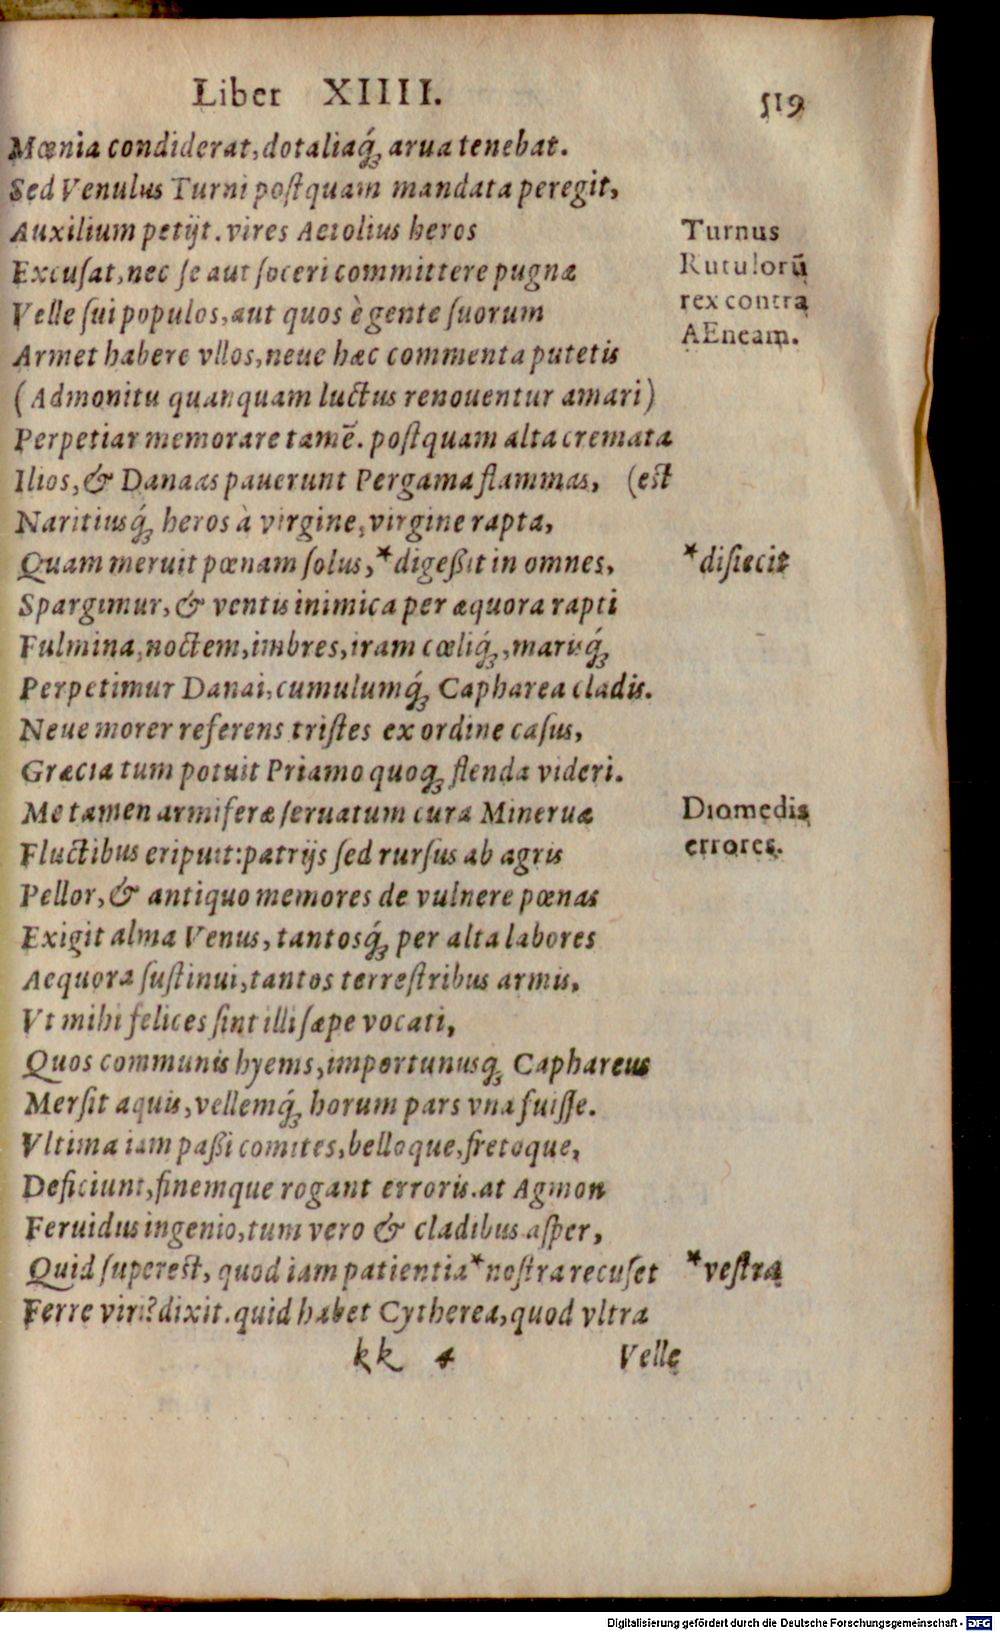 Liber XIIII. 519
Mœnia condiderat, dotaliaq́ꝫ arua tenebat.
Sed Venulus Turni postquam mandata peregit,
Auxilium petijt. vires Aetolius heros
Excusat, nec se aut soceri committere pugnæ
Velle sui populos, aut quos è gente suorum
Armet habere vllos, neue hæc commenta putetis
(Admonitu quanquam luctus renouentur amari)
Perpetiar memorare tamē. postquam alta cremata
Ilios, & Danaas pauerunt Pergama flammas, (est
Naritiusq́ꝫ heros à virgine, virgine rapta,
Quam meruit pœnam solus, *digeßit in omnes,
Spargimur, & ventis inimica per æquora rapti
Fulmina, noctem, imbres, iram cœliq́ꝫ, marisq́ꝫ
Perpetimur Danai, cumulumq́ꝫ Capharea cladis.
Neue morer referens tristes ex ordine casus,
Græcia tum potuit Priamo quoqꝫ flenda videri.
Me tamen armiferæ seruatum cura Mineruæ
Fluctibus eripuit: patrijs sed rursus ab agris
Pellor, & antiquo memores de vulnere pœnas
Exigit alma Venus, tantosq́ꝫ per alta labores
Aequora sustinui, tantos terrestribus armis,
Vt mihi felices sint illi sæpe vocati,
Quos communis hyems, importunusqꝫ Caphareus
Mersit aquis, vellemq́ꝫ horum pars vna fuisse.
Vltima iam paßi comites, belloque, fretoque,
Deficiunt, finemque rogant erroris. at Agmon
Feruidus ingenio, tum vero & cladibus asper,
Quid superest, quod iam patientia *nostra recuset
Ferre viri? dixit. quid habet Cytherea, quod vltra
kk 4 Velle
Turnus
Rutulorū
rex contra
AEneam.
*disiecit
Diomedis
errores.
*vestra
Digitalisierung gefördert durch die Deutsche Forschungsgemeinschaft - DFG